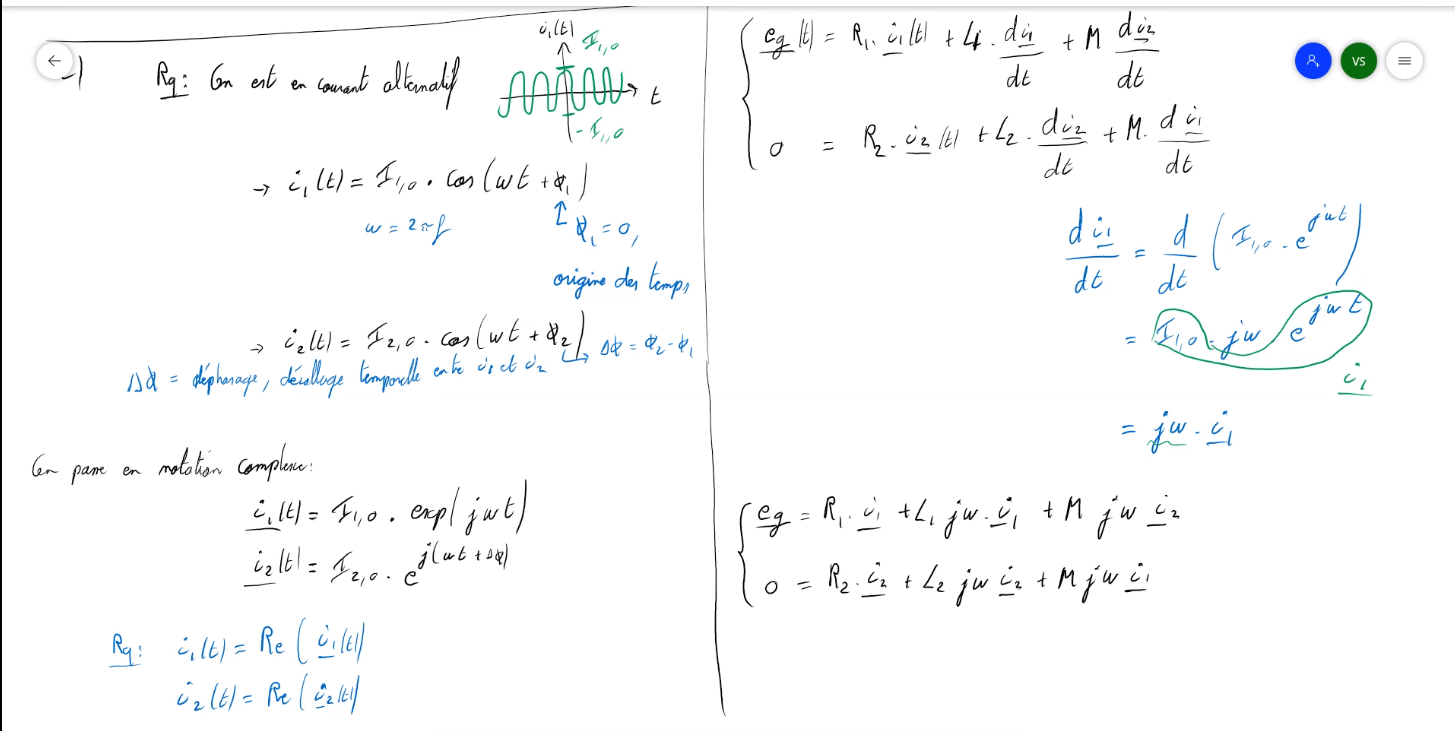 -)
Rq: On est en courant alternatif
i₁(t)
I₁,₀
t
-I₁,₀
→ i₁(t) = I₁,₀ . cos(ωt + φ₁)
ω = 2πf
φ₁ = 0,
origine des temps
→ i₂(t) = I₂,₀ . cos(ωt + φ₂)
↳ Δφ = φ₂ - φ₁
Δφ = déphasage, décallage temporelle entre i₁ et i₂
On passe en notation complexe:
i₁(t) = I₁,₀ . exp(jωt)
i₂(t) = I₂,₀ . e^j(ωt + Δφ)
Rq: i₁(t) = Re(i₁(t))
i₂(t) = Re(i₂(t))
eg(t) = R₁. i₁(t) + L₁. di₁/dt + M di₂/dt
0 = R₂. i₂(t) + L₂. di₂/dt + M. di₁/dt
di₁/dt = d/dt (I₁,₀ . e^jωt)
= I₁,₀ . jω e^jωt
i₁
= jω . i₁
eg = R₁. i₁ + L₁ jω. i₁ + M jω i₂
0 = R₂. i₂ + L₂ jω i₂ + M jω i₁
VS